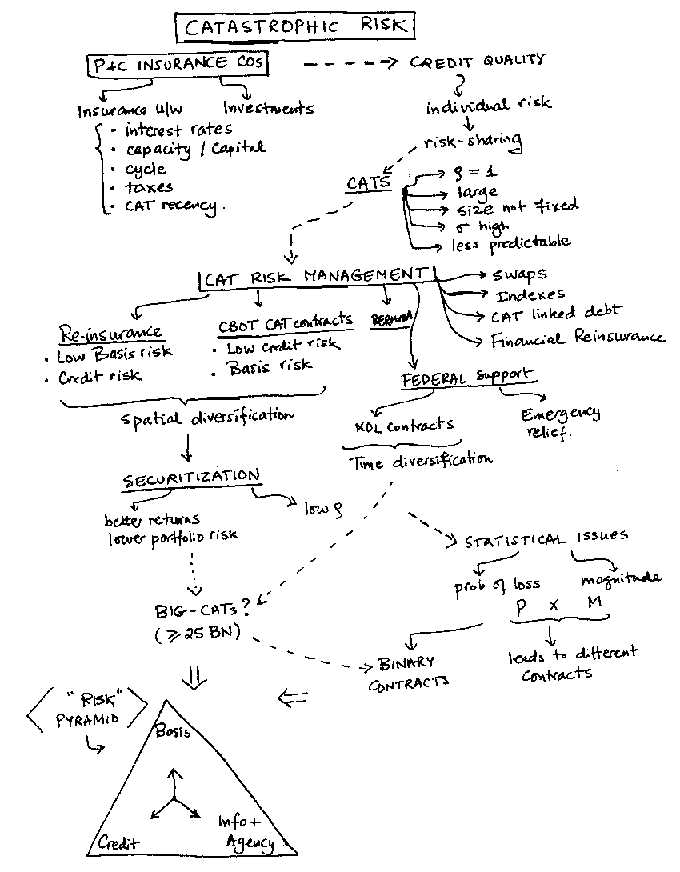 CATASTROPHIC RISK
P&C INSURANCE COS
CREDIT QUALITY
Insurance u/w
Investments
individual risk
• interest rates
• capacity / Capital
• cycle
• taxes
• CAT recency.
risk-sharing
CATS
ρ = 1
large
size not fixed
σ high
less predictable
CAT RISK MANAGEMENT
swaps
Indexes
CAT linked debt
Financial Reinsurance
Re-insurance
• Low Basis risk
• Credit risk
CBOT CAT contracts
• Low credit risk
• Basis risk
FEDERAL support
Spatial diversification
XOL contracts
Emergency
relief.
Time diversification
SECURITIZATION
better returns
lower portfolio risk
low ρ
STATISTICAL ISSUES
prob of loss
magnitude
P X M
BIG-CATs?
(≥25 BN)
BINARY
CONTRACTS
leads to different
Contracts
"RISK"
PYRAMID
Basis
Credit
Info +
Agency